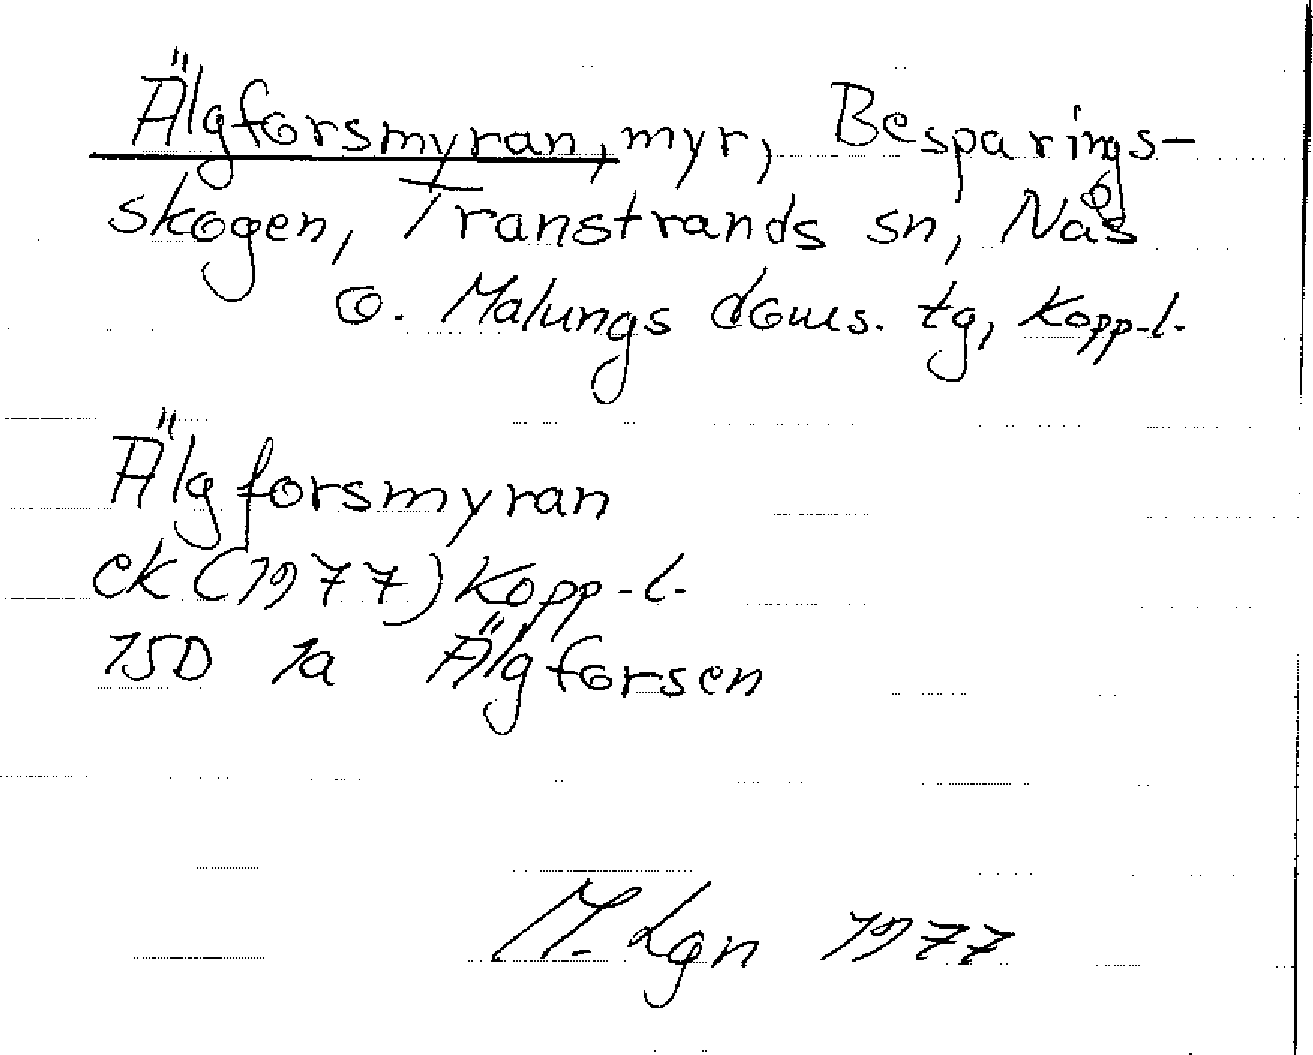 Älgforsmyran, myr, Besparings-
skogen, Transtrands sn, Nås
o. Malungs doms. tg, Kopp-l.
Älgforsmyran
ek (1977) Kopp-l.
15D 1a Älgforsen
M. Lgn 1977